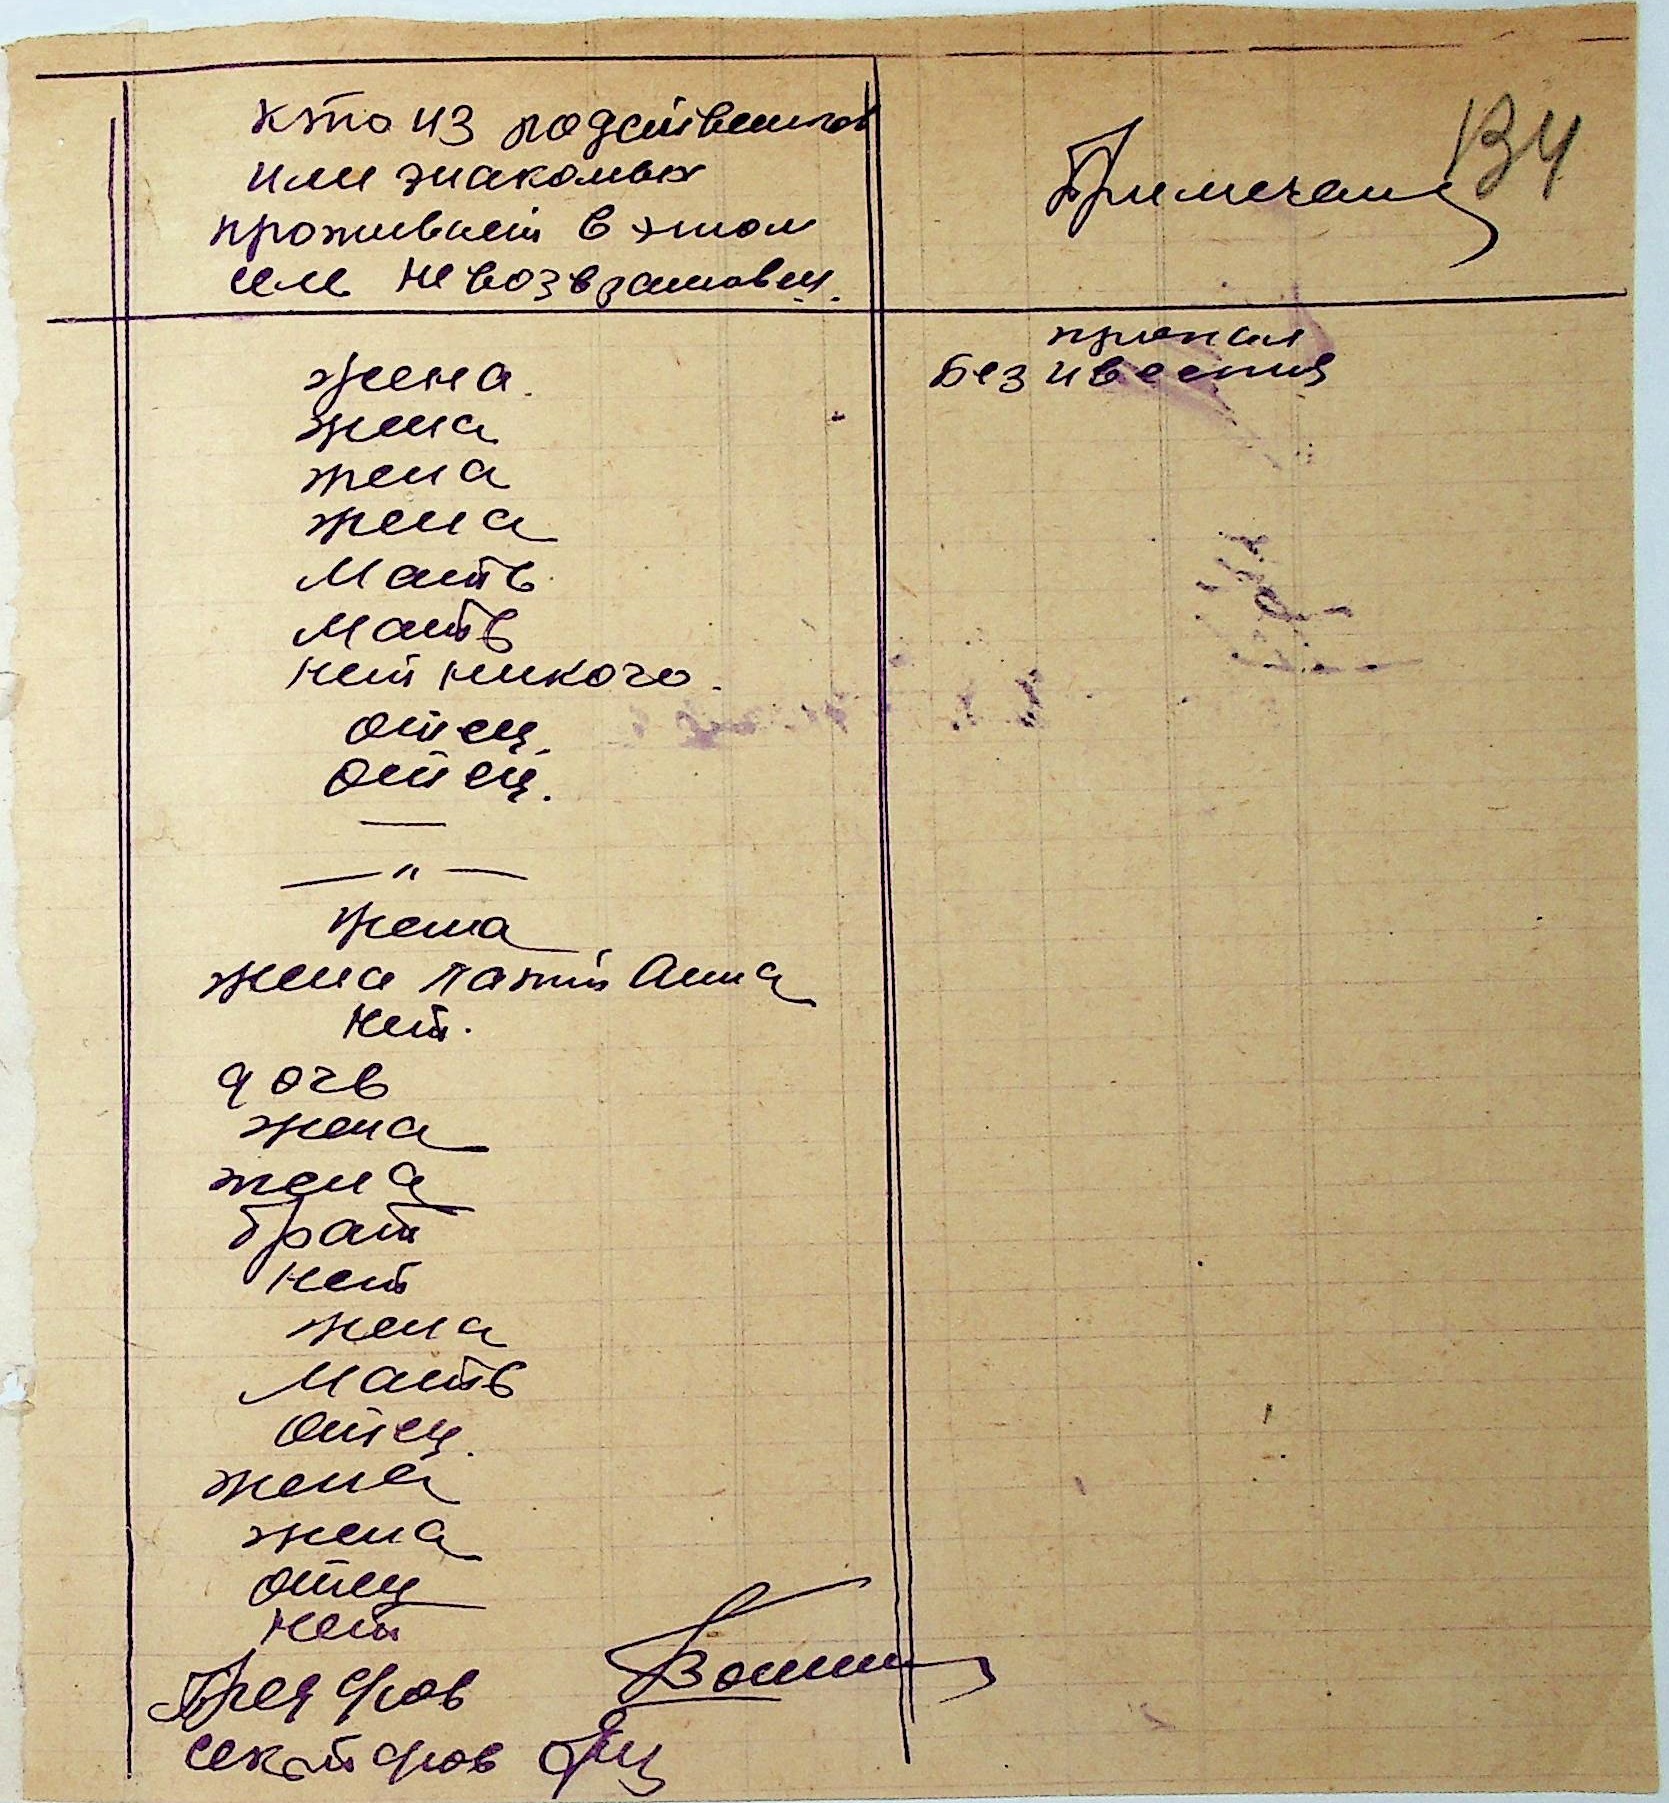 кто из родственников
или знакомых
проживает в этом
селе невозвратовец.
Примечание
134
жена.
пропал
Без ивестия
жена
жена
жена
Мать
Мать
нет никого.
отец.
отец.
—
— " —
жена
жена Анна
нет.
дочь
жена
жена
брат
нет
жена
Мать
отец.
жена
жена
отец
нет
Пред
секрт